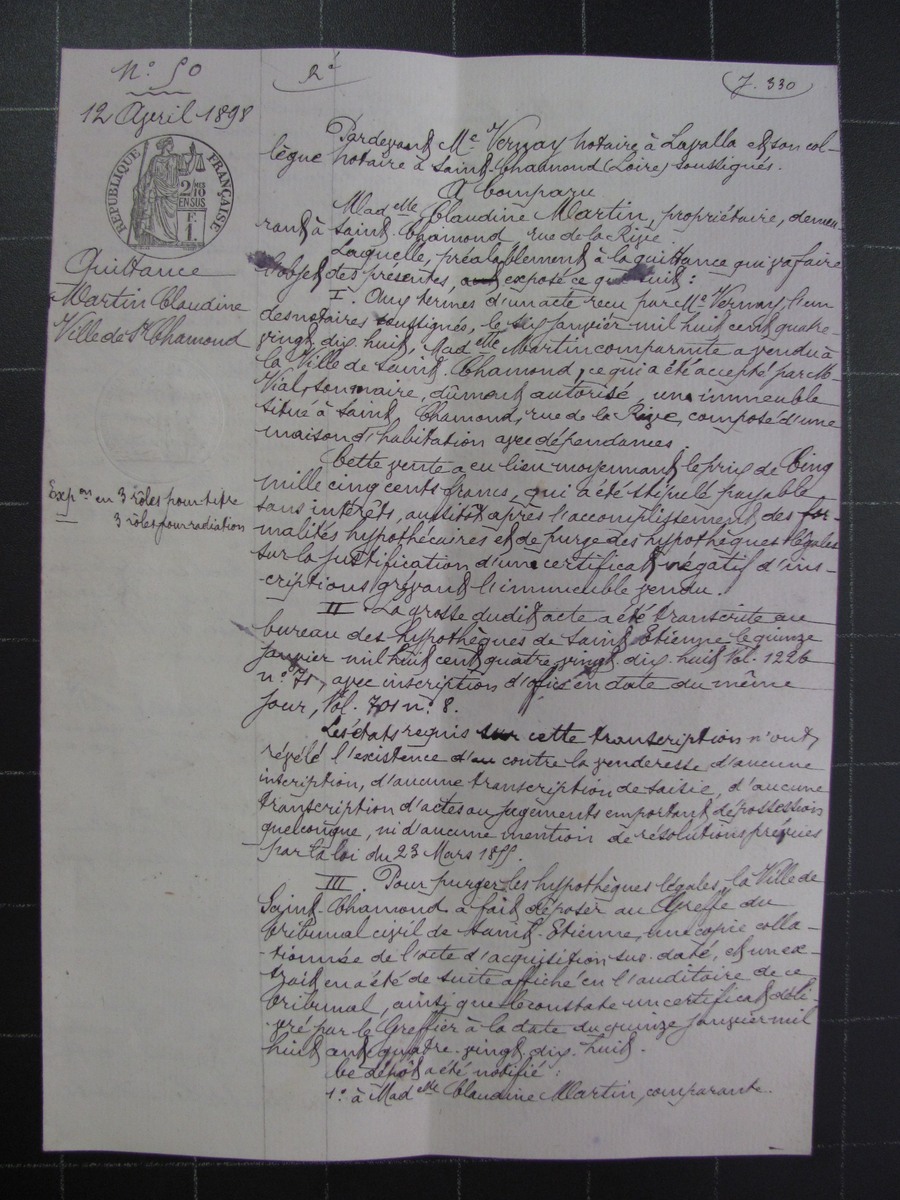 N° 50
12 Avril 1898
RÉPUBLIQUE FRANÇAISE
2/10 MES
EN SUS
F.
1.
Quittance
Martin Claudine
Ville de St Chamond
Exp.ons en 3 rôles pour titre
3 rôles pour radiation
2e
J. 330
Pardevant Me Vernay notaire à Lavalla et son col-
lègue notaire à Saint Chamond (Loire) soussignés.
A Comparu
Madelle Claudine Martin, propriétaire, demeu-
rant à Saint Chamond rue de la Rive.
Laquelle, préalablement à la quittance qui va faire
l'objet des présentes, a exposé ce qui suit :
I. Aux termes d'un acte reçu par Me Vernay l'un
des notaires soussignés, le six Janvier mil huit cent quatre-
vingt dix huit, Madelle Martin comparante a vendu à
la Ville de Saint-Chamond, ce qui a été accepté par M.
Vial, son maire, dûment autorisé, un immeuble
situé à Saint Chamond, rue de la Rive, composé d'une
maison d'habitation avec dépendances.
Cette vente a eu lieu moyennant le prix de Cinq
mille cinq cents francs, qui a été stipulé payable
sans intérêts, aussitôt après l'accomplissement des for-
malités hypothécaires et de purge des hypothèques légales
sur la justification d'un certificat négatif d'ins-
-criptions grevant l'immeuble vendu.
II. La grosse dudit acte a été transcrite au
bureau des hypothèques de Saint Etienne le quinze
Janvier mil huit cent quatre vingt dix huit Vol. 1226
n° 71, avec inscription d'office en date du même
jour, Vol. 701 n° 8.
Les états requis sur cette transcription n'ont
révélé l'existence d'au contre la venderesse d'aucune
inscription, d'aucune transcription de saisie, d'aucune
transcription d'actes ou jugements emportant dépossession
quelconque, ni d'aucune mention de résolutions prévues
par la loi du 23 Mars 1855.
III. Pour purger les hypothèques légales, la Ville de
Saint-Chamond a fait déposer au Greffe du
tribunal civil de Saint-Etienne, une copie colla-
-tionnée de l'acte d'acquisition sus-daté, et un ex-
trait en a été de suite affiché en l'auditoire de ce
tribunal, ainsi que le constate un certificat déli-
vré par le Greffier à la date du quinze Janvier mil
huit cent quatre-vingt dix-huit.
Ce dépôt a été notifié :
1° à Madelle Claudine Martin, comparante.